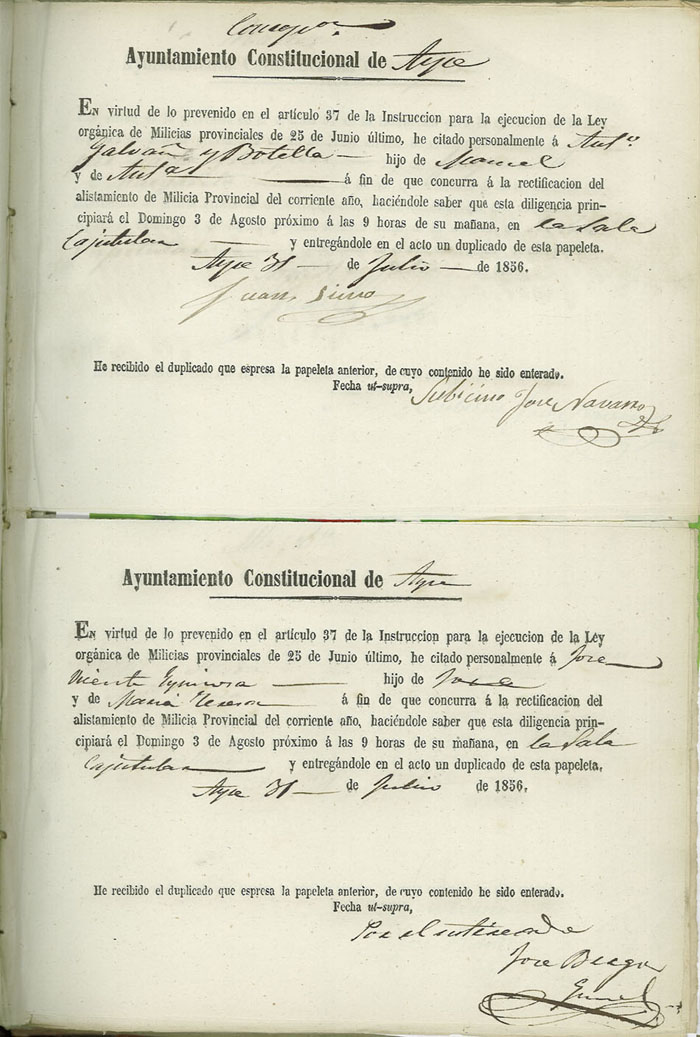 Ayuntamiento Constitucional de Aspe
EN virtud de lo prevenido en el artículo 37 de la Instruccion para la ejecucion de la Ley
orgánica de Milicias provinciales de 25 de Junio último, he citado personalmente á Antº
Galvañ y Botella hijo de Manuel
y de Antª á fin de que concurra á la rectificacion del
alistamiento de Milicia Provincial del corriente año, haciéndole saber que esta diligencia prin-
cipiará el Domingo 3 de Agosto próximo á las 9 horas de su mañana, en la Sala
Capitular y entregándole en el acto un duplicado de esta papeleta.
Aspe 31 de Julio de 1856.
Juan
He recibido el duplicado que espresa la papeleta anterior, de cuyo contenido he sido enterado.
Fecha ut-supra,
Jose Navarro
Ayuntamiento Constitucional de Aspe
EN virtud de lo prevenido en el artículo 37 de la Instruccion para la ejecucion de la Ley
orgánica de Milicias provinciales de 25 de Junio último, he citado personalmente á Jose
Vicente hijo de Jose
y de Maria Teresa á fin de que concurra á la rectificacion del
alistamiento de Milicia Provincial del corriente año, haciéndole saber que esta diligencia prin-
cipiará el Domingo 3 de Agosto próximo á las 9 horas de su mañana, en la Sala
Capitular y entregándole en el acto un duplicado de esta papeleta.
Aspe 31 de Julio de 1856.
He recibido el duplicado que espresa la papeleta anterior, de cuyo contenido he sido enterado.
Fecha ut-supra,
Por el interesado
Jose